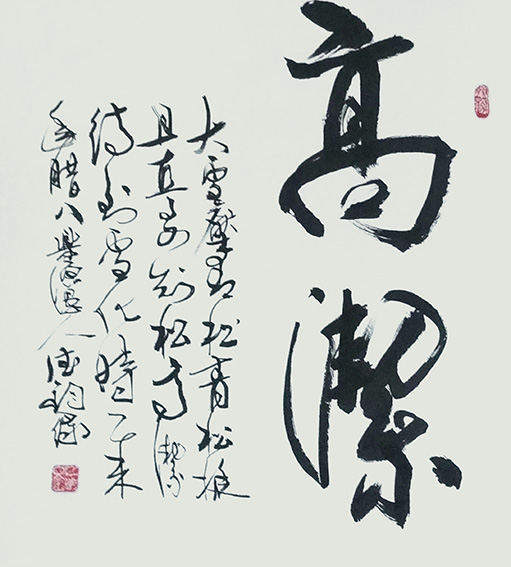 高潔
大雪壓青松青松挺
且直要知松高潔
待到雪化時
年臘八人